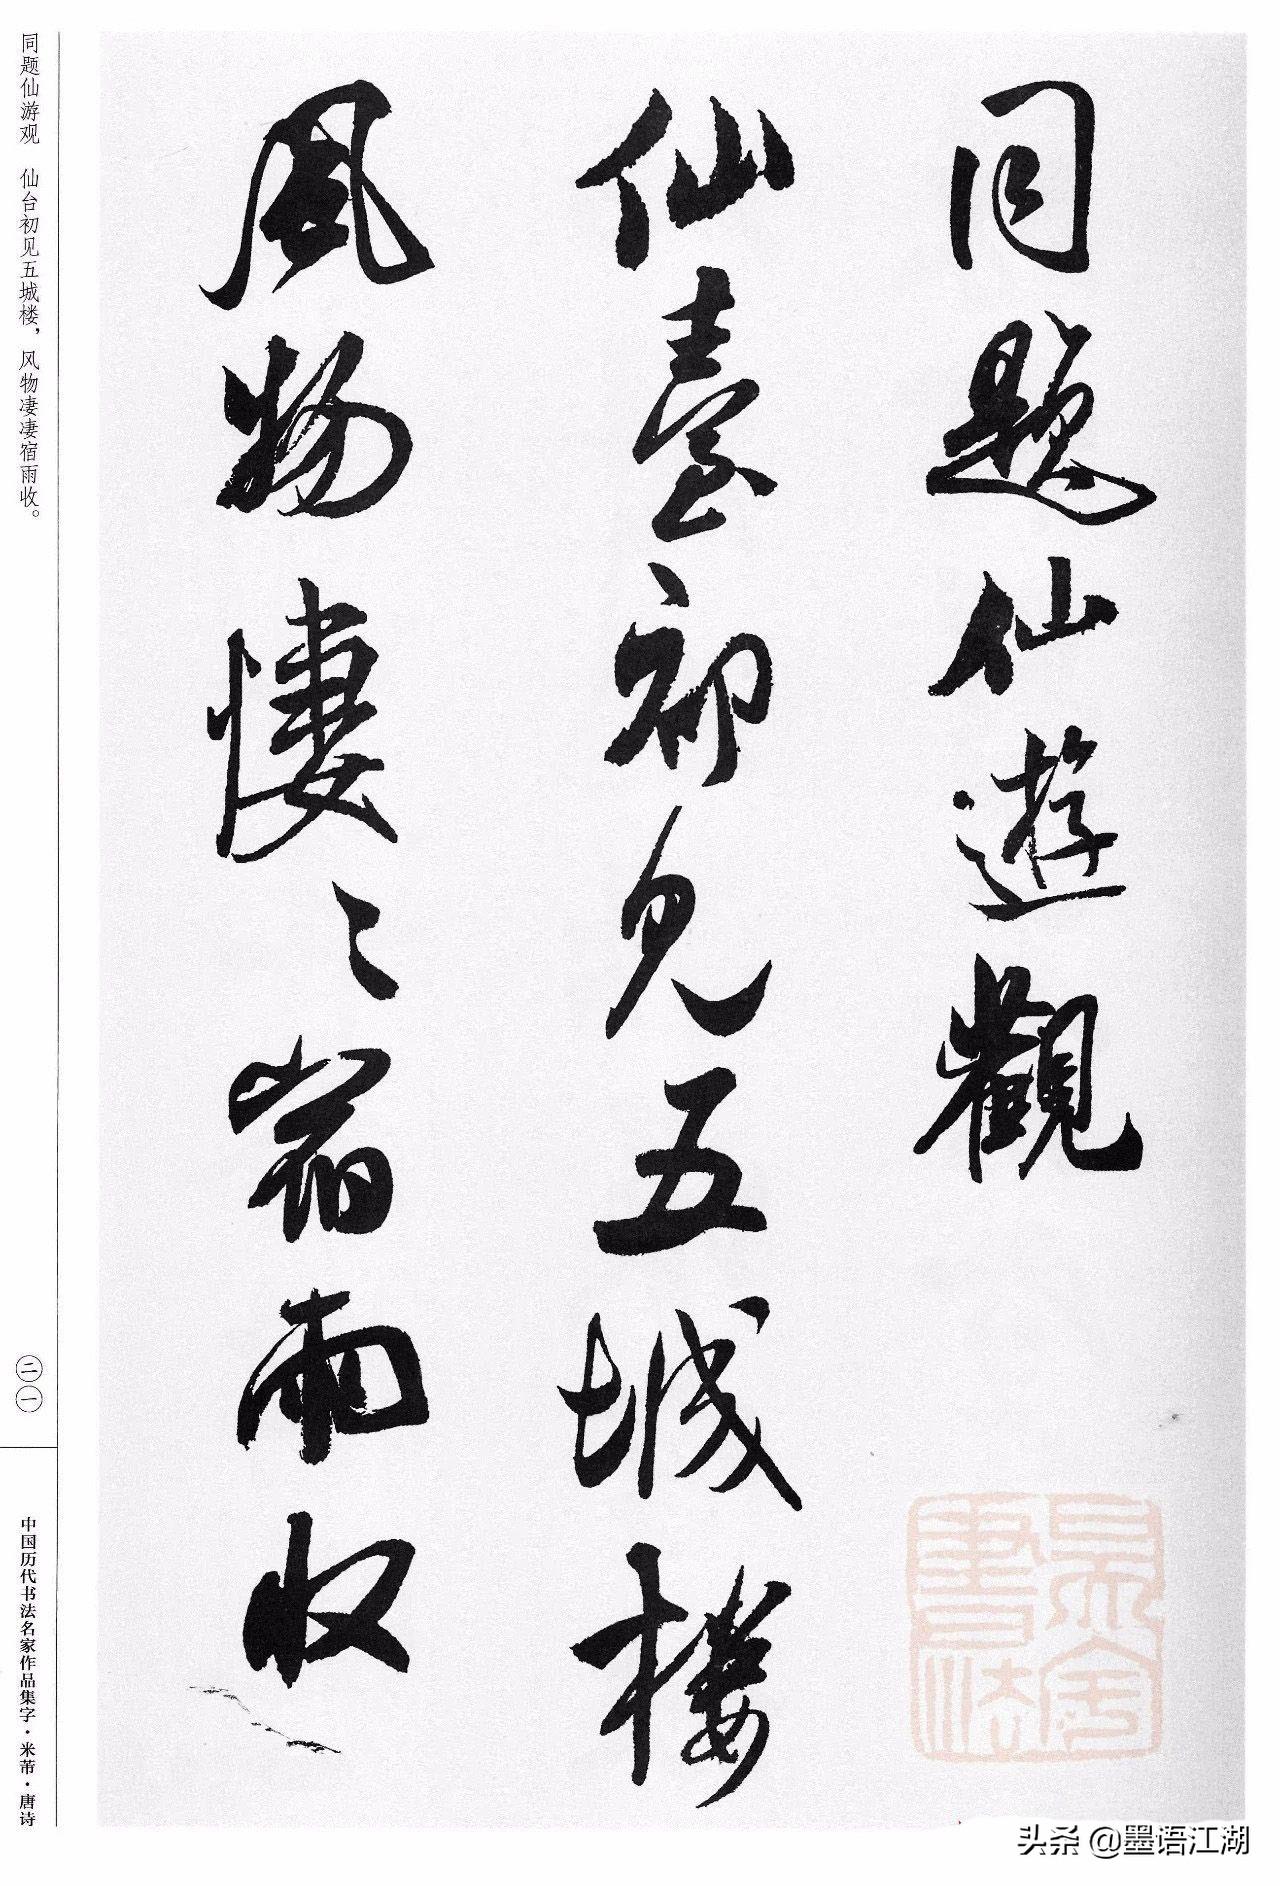 同题仙遊觀
仙臺初见五城楼
風物悽〻宿雨收
同题仙游观 仙台初见五城楼，风物凄凄宿雨收。
二一
中国历代书法名家作品集字·米芾·唐诗
头条 @墨语江湖